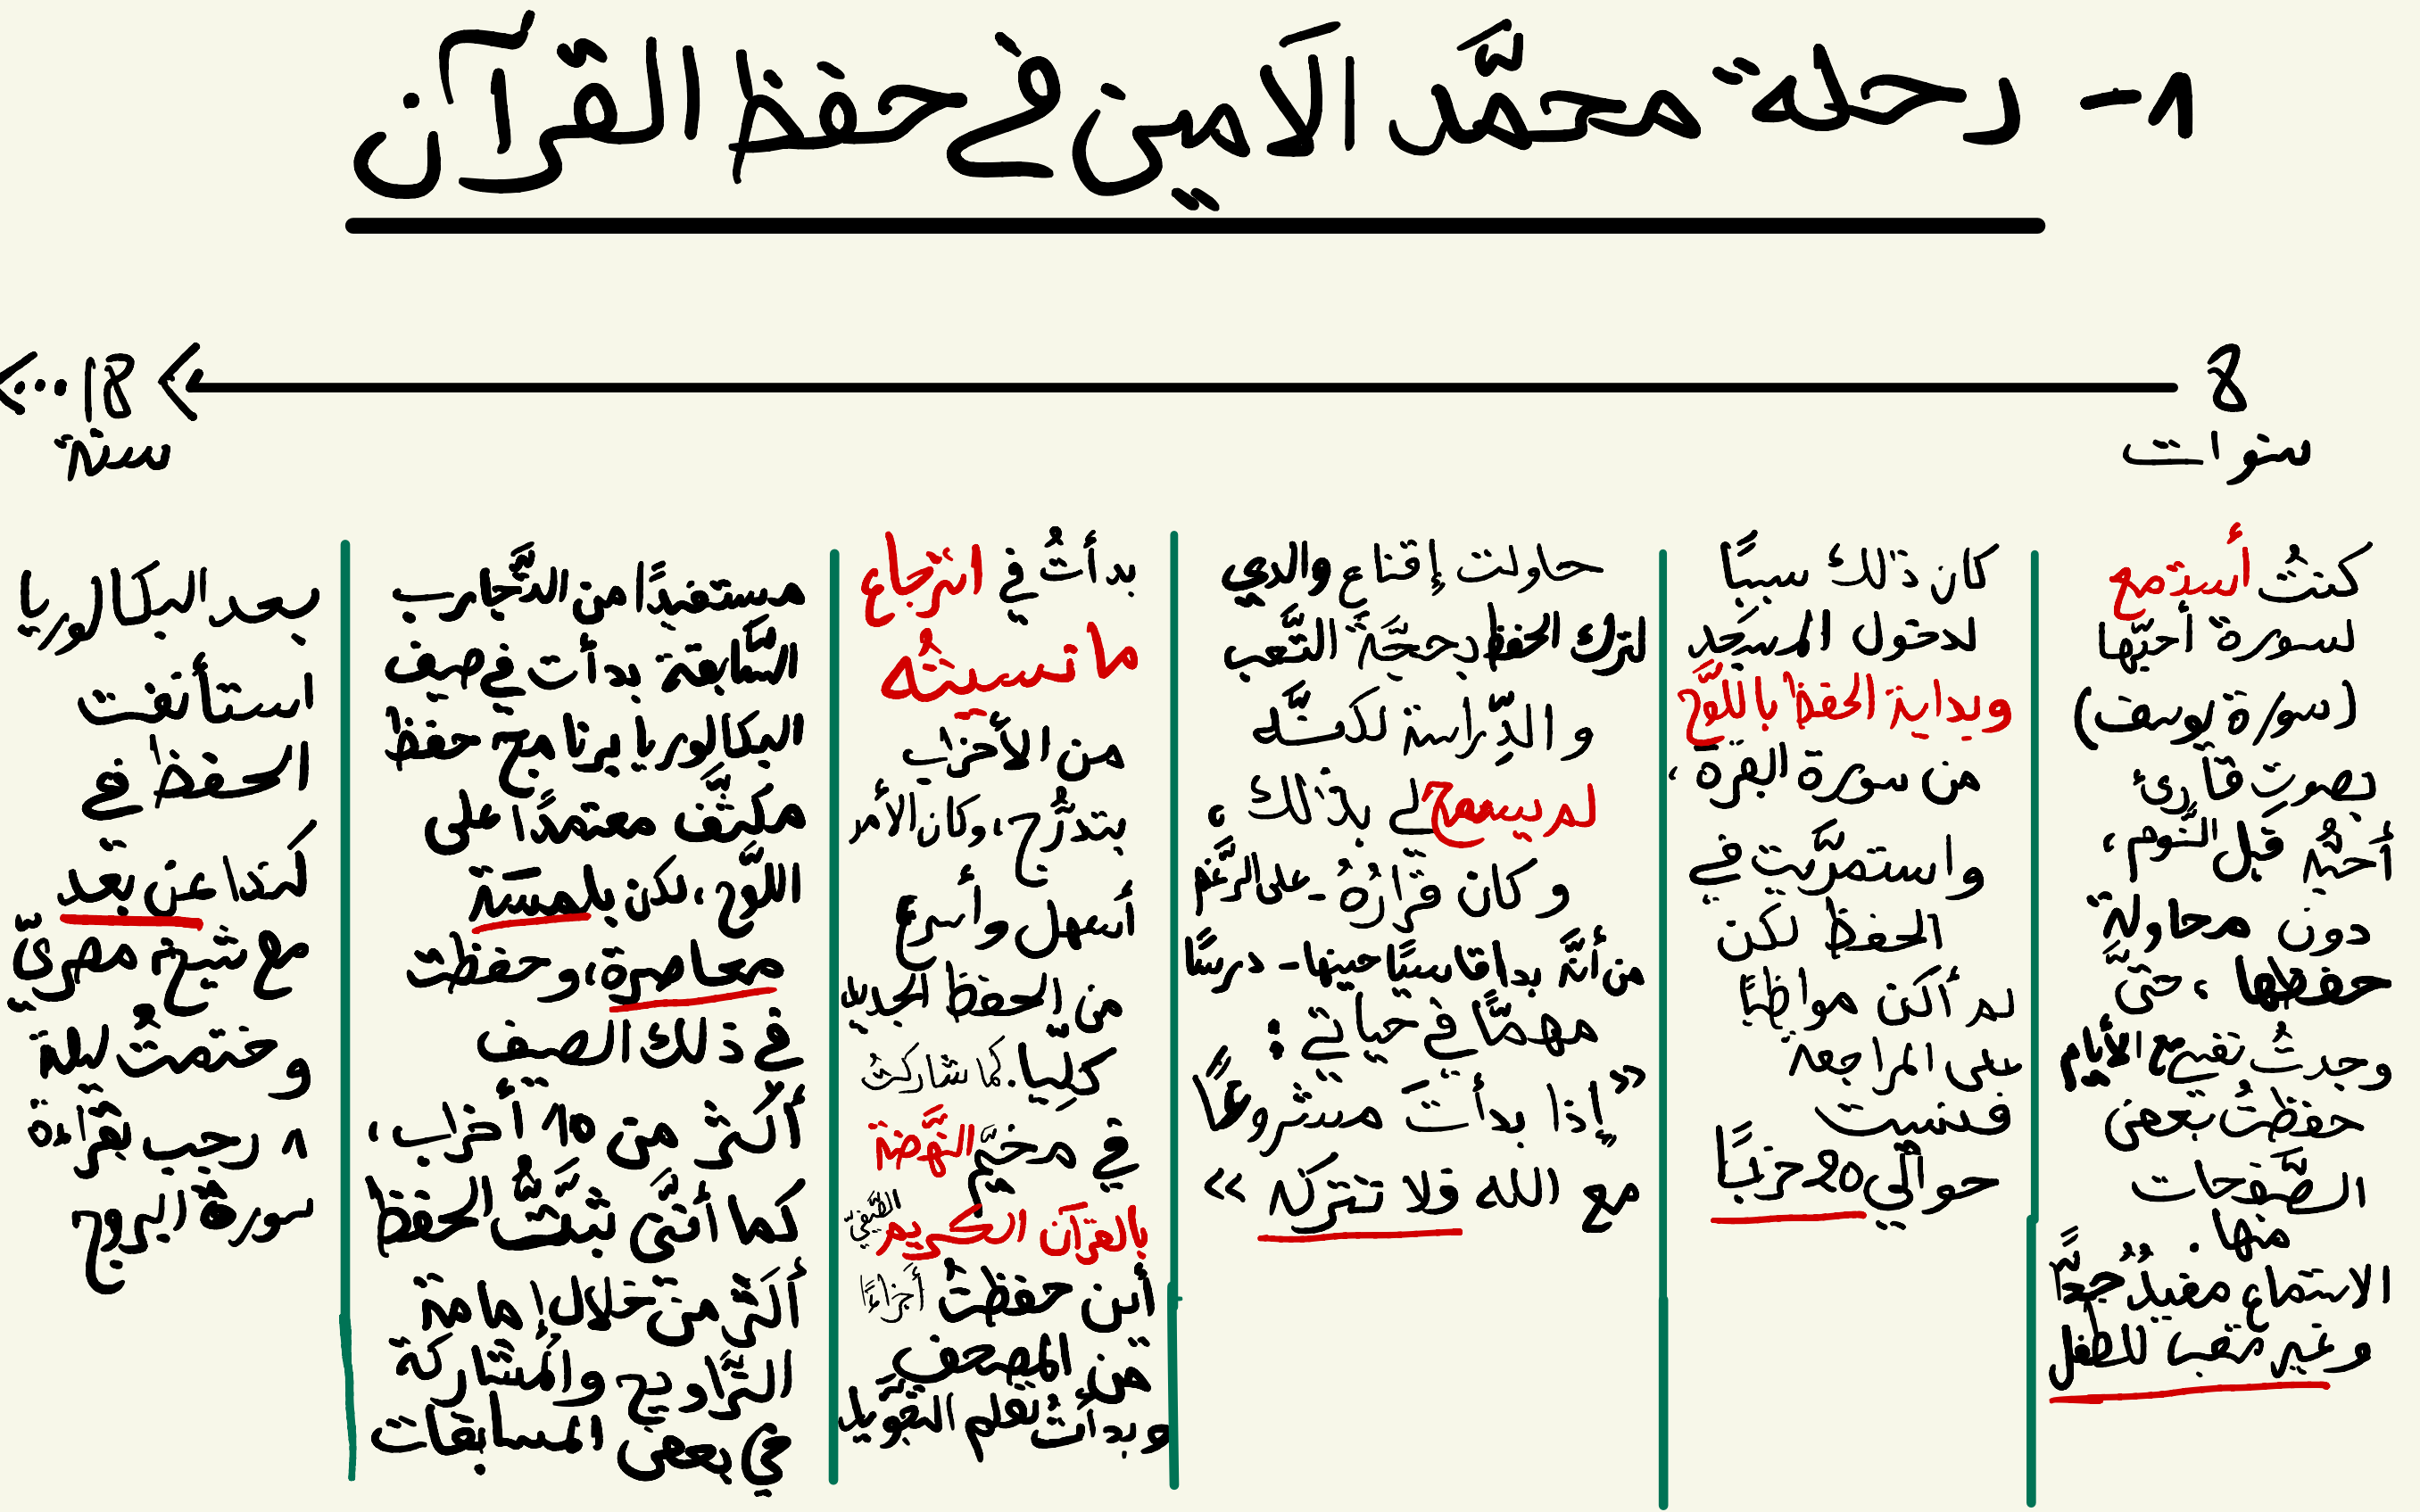 1- رحلة محمَّد الأمين في حفظ القرآن
8
سنوات
18 ...
سنة
كنتُ أستمع
لسورة أحبّها
(سورة يوسف)
بصوت قارئ
أحبّه قبل النّوم،
دون محاولة
حفظها، حتّى
وجدتُ نفسي مع الأيام
حفظتُ بعض
الصَّفحات
منها.
الاستماع مفيدٌ جدًّا
وغير متعب للطفل
كان ذلك سببًا
لدخول المسجد
وبداية الحفظ باللَّوح
من سورة البقرة،
واستمرَّيت في
الحفظ لكن
لم أكن مواظبًا
على المراجعة
فنسيت
حوالي 20 حزبًا
حاولت إقناع والدي
لترك الحفظ بحجَّة التَّعب
والدِّراسة لكنَّه
لم يسمح لي بذلك،
وكان قرارُهُ - على الرَّغم
من أنَّه بدا قاسيًا حينها - درسًا
مهمًّا في حياتي:
"إذا بدأتَ مشروعًا
مع الله فلا تتركه"
بدأتُ في استرجاع
ما نسيتُه
من الأحزاب
بتدرُّج، وكان الأمر
أسهل وأسرع
من الحفظ الجديد
كلِّيا. كما شاركتُ
في مخيَّم النَّهضة
بالقرآن الكريم الصَّيفيّ
أين حفظتُ أجزاءً
من المصحف
وبدأتُ تعلم التجويد
مستفيدًا من التَّجارب
السَّابقة بدأت في صيف
البكالوريا برنامج حفظ
مكثَّف معتمدًا على
اللَّوح، لكن بلمسة
معاصرة، وحفظت
في ذلك الصيف
أكثر من 10 أحزاب،
كما أنَّني ثبَّتُّ الحفظ
أكثر من خلال إمامة
التَّراويح والمُشاركة
في بعض المسابقات
بعد البكالوريا
استأنفت
الحفظ في
كندا عن بعد
مع شيخ مصريّ
وختمتُ ليلة
1 رجب بقراءة
سورة البروج